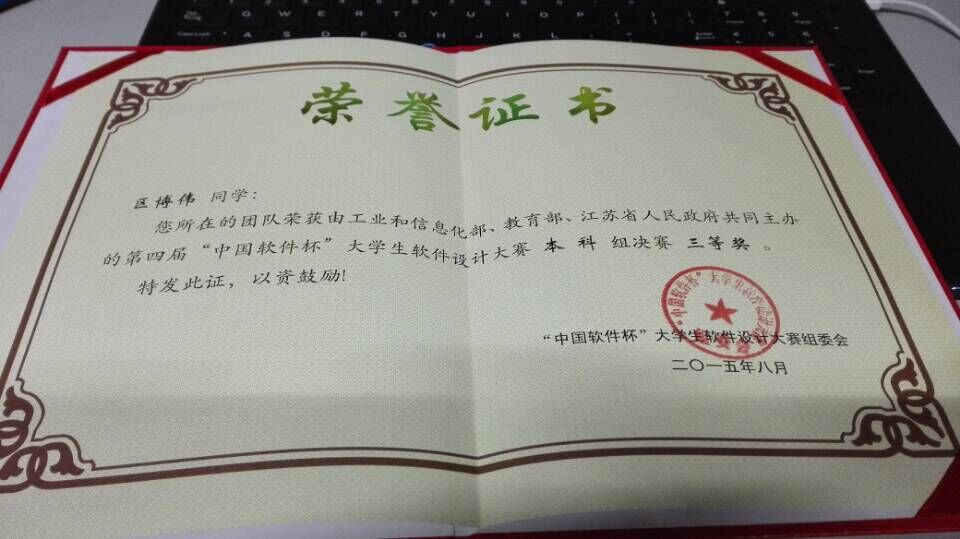 荣誉证书
区博伟 同学：
您所在的团队荣获由工业和信息化部、教育部、江苏省人民政府共同主办
的第四届“中国软件杯”大学生软件设计大赛 本 科 组决赛 三等奖 。
特发此证，以资鼓励!
“中国软件杯”大学生软件设计大赛组委会
二〇一五年八月